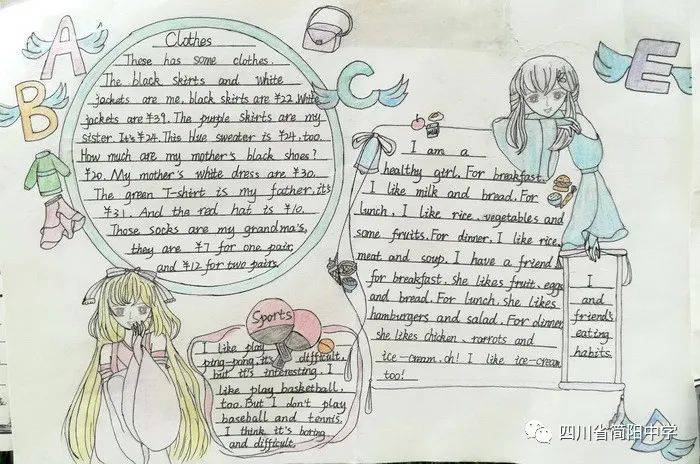 A
B
C
E
Clothes
These has some clothes.
The black skirts and white
jackets are me, black skirts are ¥22. White
jackets are ¥39. The purple skirts are my
sister. It's ¥24. This blue sweater is ¥24, too.
How much are my mother's black shoes?
¥20. My mother's white dress are ¥30.
The green T-shirt is my father, it's
¥31. And the red hat is ¥10.
Those socks are my grandma's,
they are ¥7 for one pair,
and ¥12 for two pairs.
I am a
healthy girl. For breakfast,
I like milk and bread. For
lunch, I like rice, vegetables and
some fruits. For dinner, I like rice,
meat and soup. I have a friend,
for breakfast, she likes fruit, eggs
and bread. For lunch, she likes
hamburgers and salad. For dinner
she likes chicken, rarrots and
ice-cream, oh! I like ice-cream
too!
I
and
friend's
eating
habits
Sports
I like play
ping-pong, it's difficult,
but it's interesting. I
like play basketball,
too. But I don't play
baseball and tennis,
I think it's boring
and difficult.
四川省简阳中学